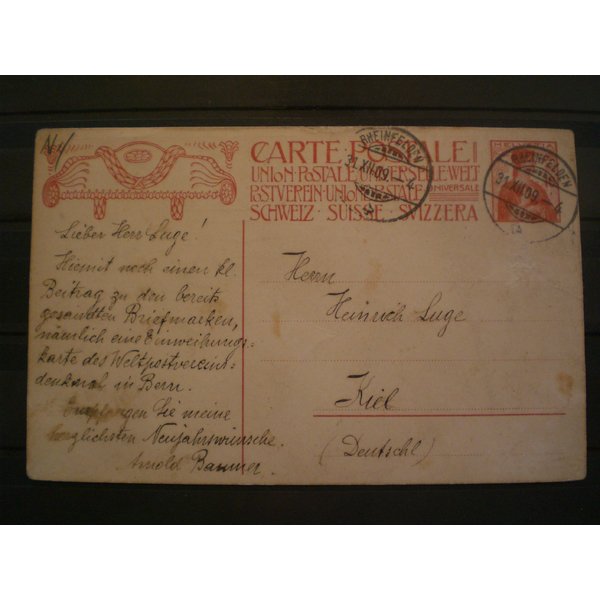 CARTE POSTALE
UNION POSTALE UNIVERSELLE WELT
POSTVEREIN UNIONE POSTALE UNIVERSALE
SCHWEIZ · SUISSE · SVIZZERA
HELVETIA
RHEINFELDEN
31.XII.09. 4
RHEINFELDEN
31.XII.09. 4
Lieber Herr Luge!
Hiemit noch einen kl.
Beitrag zu den bereits
gesandten Briefmarken,
nämlich eine Einweihungs-
karte des Weltpostvereins-
denkmal in Bern.
Empfangen Sie meine
herzlichsten Neujahrswünsche.
Arnold
Herrn
Heinrich Luge
Kiel
(Deutschl.)